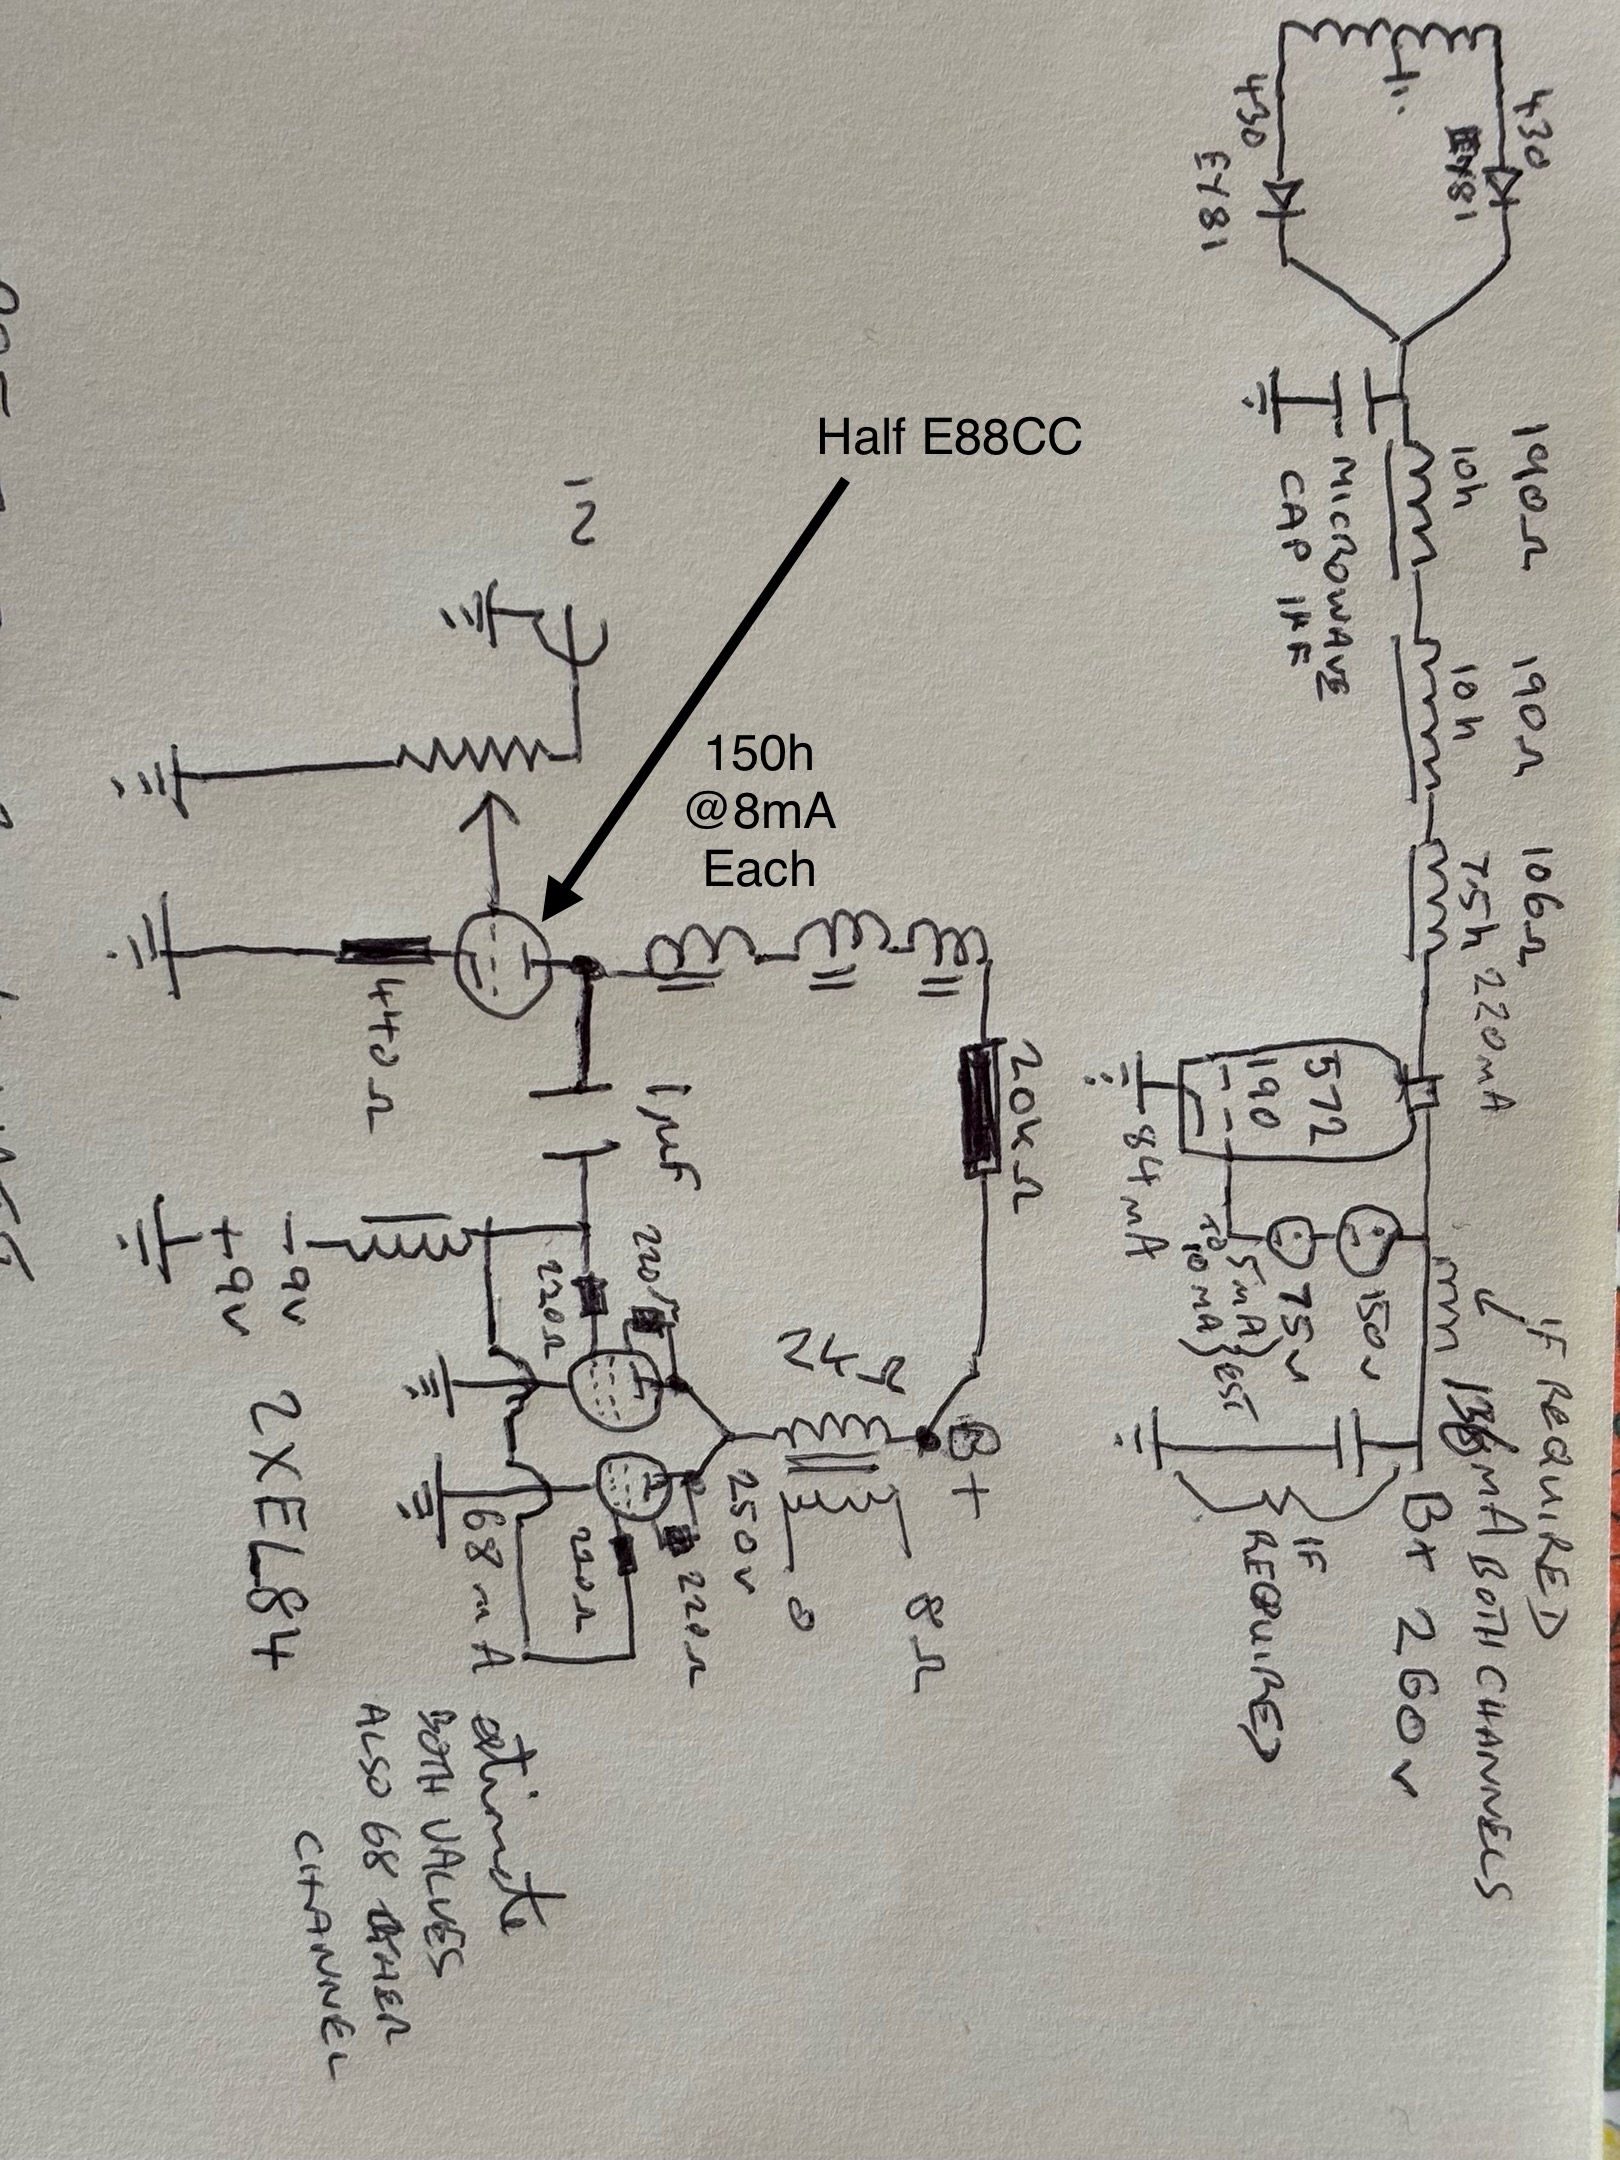 430
EY81
430
EY81
190Ω
10h
190Ω
10h
106Ω
7.5h
220mA
MICROWAVE
CAP 1µF
572
190
84mA
150v
75v
5mA
TO
10mA
EST
IF REQUIRED
mA BOTH CHANNELS
B+ 260v
IF
REQUIRED
Half E88CC
150h
@8mA
Each
IN
440Ω
20kΩ
1µF
-9v
+9v
220Ω
220Ω
B+
8Ω
0
250v
220Ω
220Ω
68mA
2XEL84
estimate
BOTH VALVES
ALSO 68 OTHER
CHANNEL